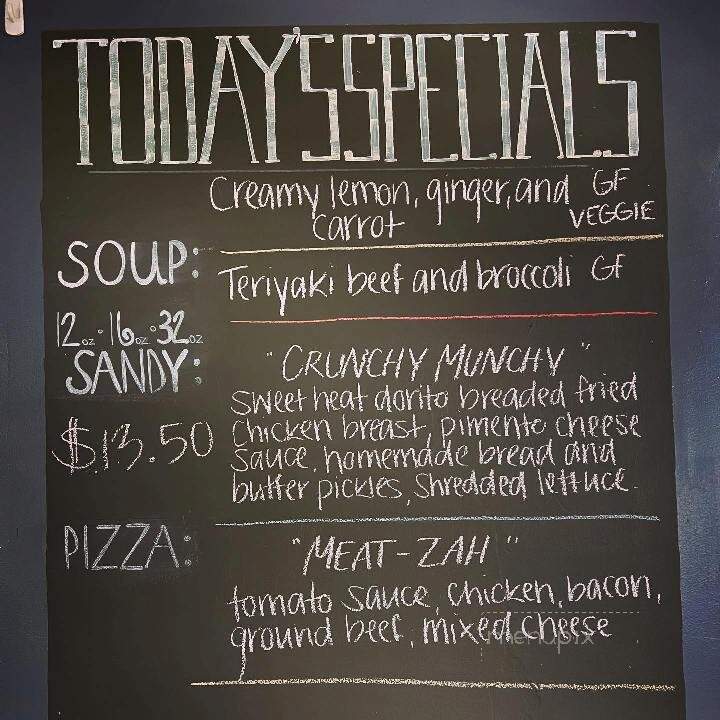 TODAY'S SPECIALS
Creamy lemon, ginger, and GF
carrot VEGGIE
SOUP:
Teriyaki beef and broccoli GF
12oz·16oz·32oz
SANDY:
"CRUNCHY MUNCHY"
sweet heat dorito breaded fried
$13.50
chicken breast, pimento cheese
sauce, homemade bread and
butter pickles, shredded lettuce.
PIZZA:
"MEAT-ZAH"
tomato sauce, chicken, bacon,
ground beef, mixed cheese
menupix